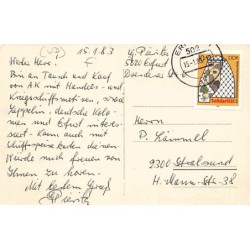 15.1.83
Werter Herr!
Bin an Tausch und Kauf
von AK mit Handels- und
Kriegsschiffmotiven, sowie
Zeppelin, deutsche Kolo-
nien und Erfurt interes-
siert. Kann auch mit
Schiffspostkarten dienen.
Würde mich freuen von
Ihnen zu hören.
Mit bestem Gruß
5020 Erfurt
502
15.-1.
DDR
Solidarität
Herrn
P. Lämmel
9300 Stralsund
H.-Mann-Str. 38